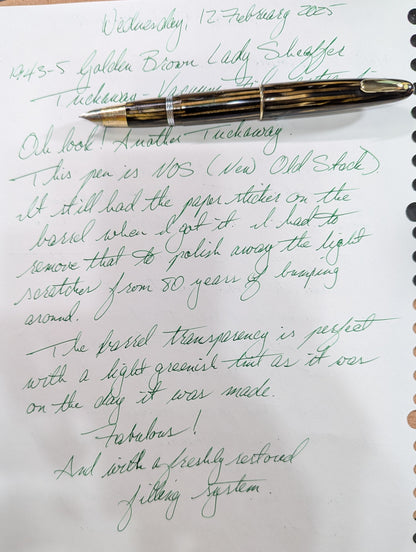 Wednesday, 12 February 2025
1943-5 Golden Brown Lady Sheaffer
Tuckaway - Vacuum
Oh look! Another Tuckaway.
This pen is NOS (New Old Stock)
It still had the paper sticker on the
barrel when I got it. I had to
remove that to polish away the light
scratches from 80 years of bumping
around.
The barrel transparency is perfect
with a light greenish tint as it was
on the day it was made.
Fabulous!
And with a freshly restored
filling system.